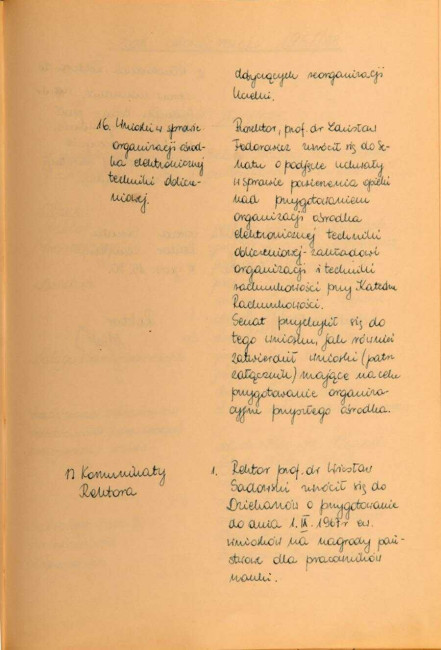 dotyczących reorganizacji
Uczelni.
16. Wnioski w sprawie
organizacji ośrod-
ka elektronicznej
techniki oblicze-
niowej.
Prorektor, prof. dr Zdzisław
Fedorowicz zwrócił się do Se-
natu o podjęcie uchwały
w sprawie powierzenia opieki
nad przygotowaniem
organizacji ośrodka
elektronicznej techniki
obliczeniowej - zakładowi
organizacji i techniki
rachunkowości przy Katedrze
Rachunkowości.
Senat przychylił się do
tego wniosku, jak również
zatwierdził wnioski (patrz
załącznik) mające na celu
przygotowanie organiza-
cyjne przyszłego ośrodka.
17 Komunikaty
Rektora
1. Rektor prof. dr Wiesław
Sadowski zwrócił się do
Dziekanów o przygotowanie
do dnia 1. 1967 r ew.
wniosków na nagrody pań-
stwowe dla pracowników
nauki.